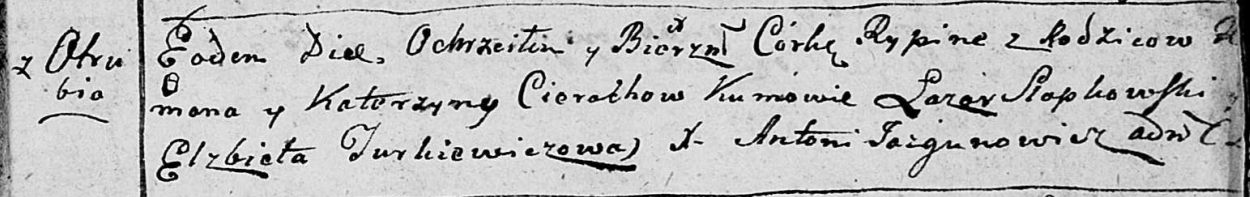 z Otru
bia
Eodem Die, Ochrzcilem y Bierzm Córkę Rypine z Rodzicow
mana y Katarzyny Cierachow Kumowie Lazar Slapkowski
Elzbieta Jurkiewiczowa) X. Antoni Jazgunowicz